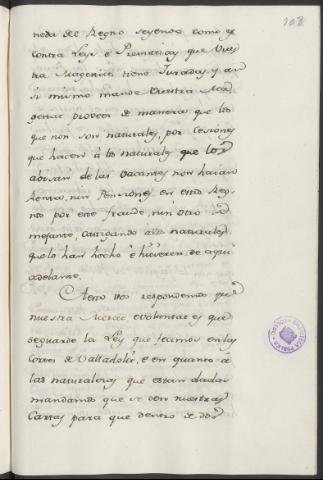 108
neda del Regno seyendo como es
contra Leys e Premáticas que Vues
tra Magestat tiene Juradas, y an
si mismo mande Vuestra Ma
gestat proveer de manera que los
que non son naturales, por Cesiones
que hacen á los naturales que los
abisan de las Vacantes non haian
Renta, nin Pensiones en estos Reg
nos por este fraude, nin otro se
mejante, castigando a los naturales
que lo han hecho é hicieren de aqui
adelante.
A esto vos respondemos que
nuestra Merced e voluntat es que
se guarde la Ley que fecimos en las
Cortes de Valladolid, e en quanto á
las naturalezas que estan dadas
mandamos que se den nuestras
Cartas para que dentro de dos